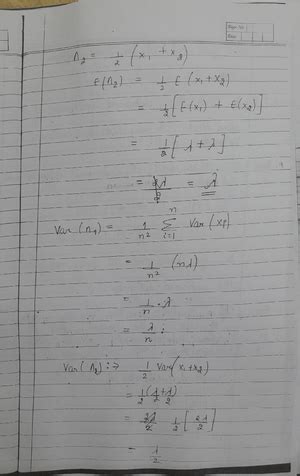 Λ₂ = 1/2 (x₁ + x₂)
E(Λ₂) = 1/2 E (x₁ + x₂)
= 1/2 [E(x₁) + E(x₂)]
= 1/2 [λ + λ]
= 2λ/2 = λ
Var (Λ₁) = 1/n² Σ i=1 n Var (xᵢ)
= 1/n² (nλ)
= 1/n · λ
= λ/n ;
Var (Λ₂) :→ 1/2 Var (x₁ + x₂)
= 1/2 (λ/2 + λ/2)
= 2λ/2 1/2 [2λ/2]
= λ/2